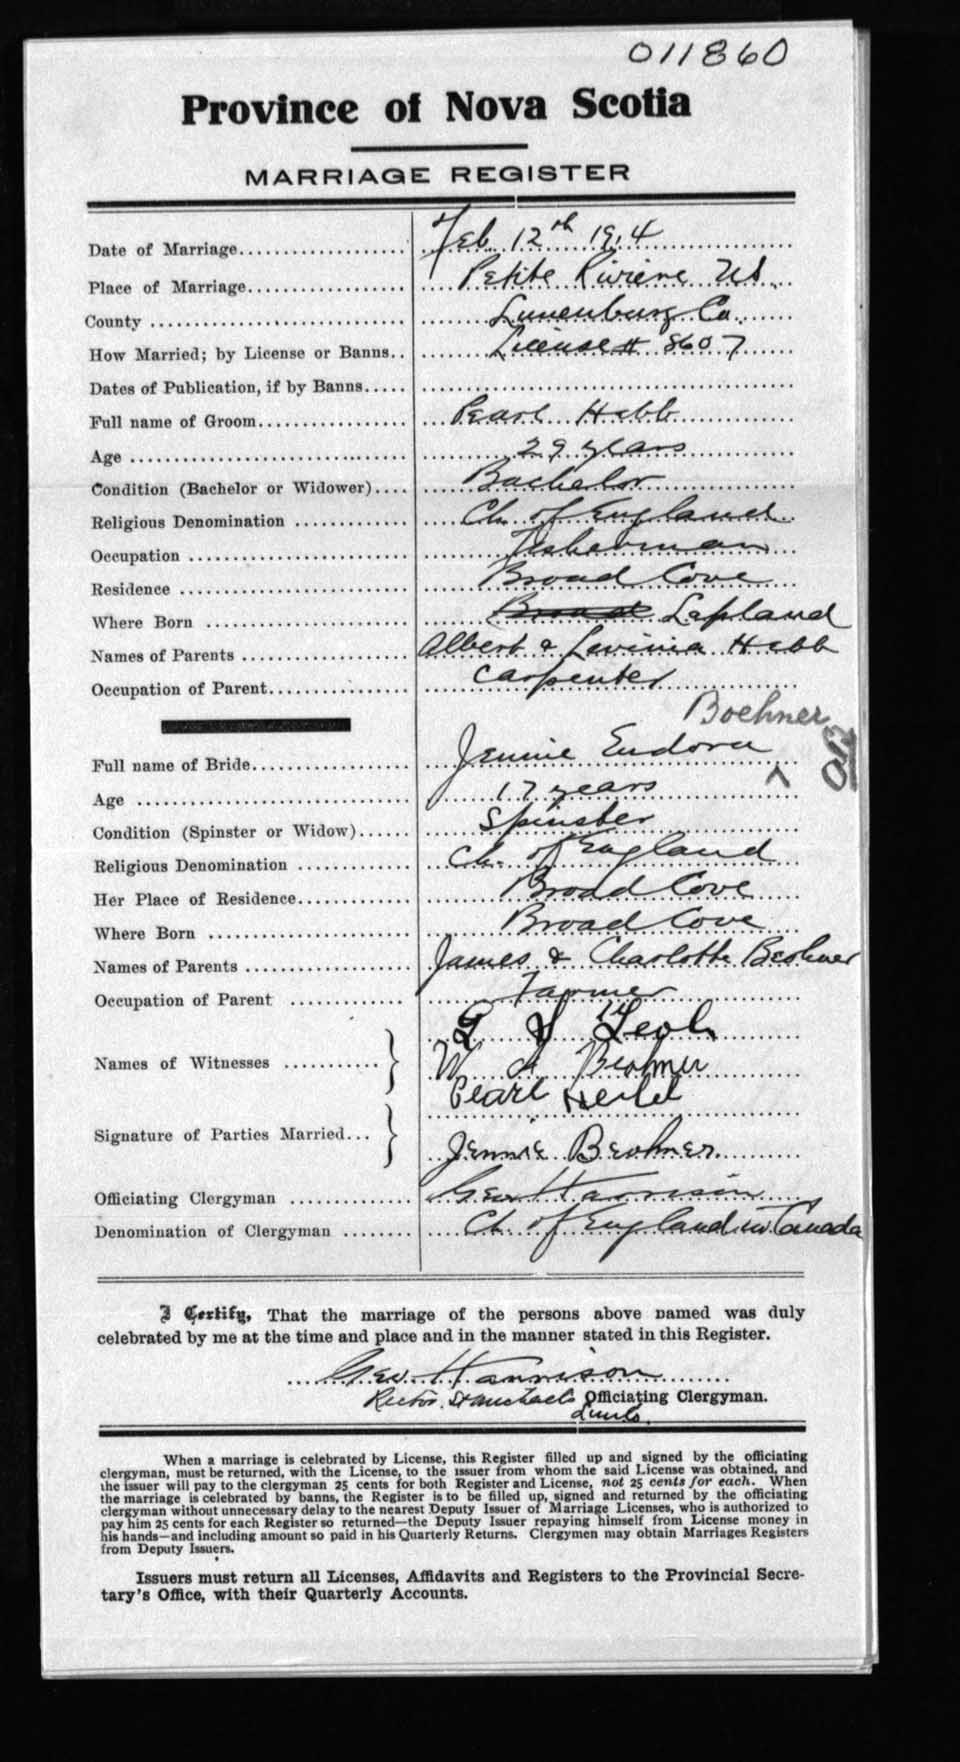 011860
Province of Nova Scotia
MARRIAGE REGISTER
Date of Marriage Feb 12th 1914
Place of Marriage Petite Riviere NS
County Lunenburg Co.
How Married; by License or Banns.. License # 8607
Dates of Publication, if by Banns
Full name of Groom Pearl Hebb
Age 29 years
Condition (Bachelor or Widower) Bachelor
Religious Denomination Ch. of England
Occupation Fisherman
Residence Broad Cove
Where Born Broad Lapland
Names of Parents Albert & Levinia Hebb
Occupation of Parent Carpenter
Boehner
Full name of Bride Jennie Eudora
Age 17 years
Condition (Spinster or Widow) Spinster
Religious Denomination Ch. of England
Her Place of Residence Broad Cove
Where Born Broad Cove
Names of Parents James & Charlotte Beohner
Occupation of Parent Farmer
Names of Witnesses
W A Beohner
Pearl
Signature of Parties Married
Jennie Beohner
Officiating Clergyman Geo Harrison
Denomination of Clergyman Ch. of England in Canada
I Certify, That the marriage of the persons above named was duly
celebrated by me at the time and place and in the manner stated in this Register.
Geo. Harrison
Rector St Michaels Officiating Clergyman.
When a marriage is celebrated by License, this Register filled up and signed by the officiating
clergyman, must be returned, with the License, to the issuer from whom the said License was obtained, and
the issuer will pay to the clergyman 25 cents for both Register and License, not 25 cents for each. When
the marriage is celebrated by banns, the Register is to be filled up, signed and returned by the officiating
clergyman without unnecessary delay to the nearest Deputy Issuer of Marriage Licenses, who is authorized to
pay him 25 cents for each Register so returned—the Deputy Issuer repaying himself from License money in
his hands—and including amount so paid in his Quarterly Returns. Clergymen may obtain Marriages Registers
from Deputy Issuers.
Issuers must return all Licenses, Affidavits and Registers to the Provincial Secre-
tary's Office, with their Quarterly Accounts.